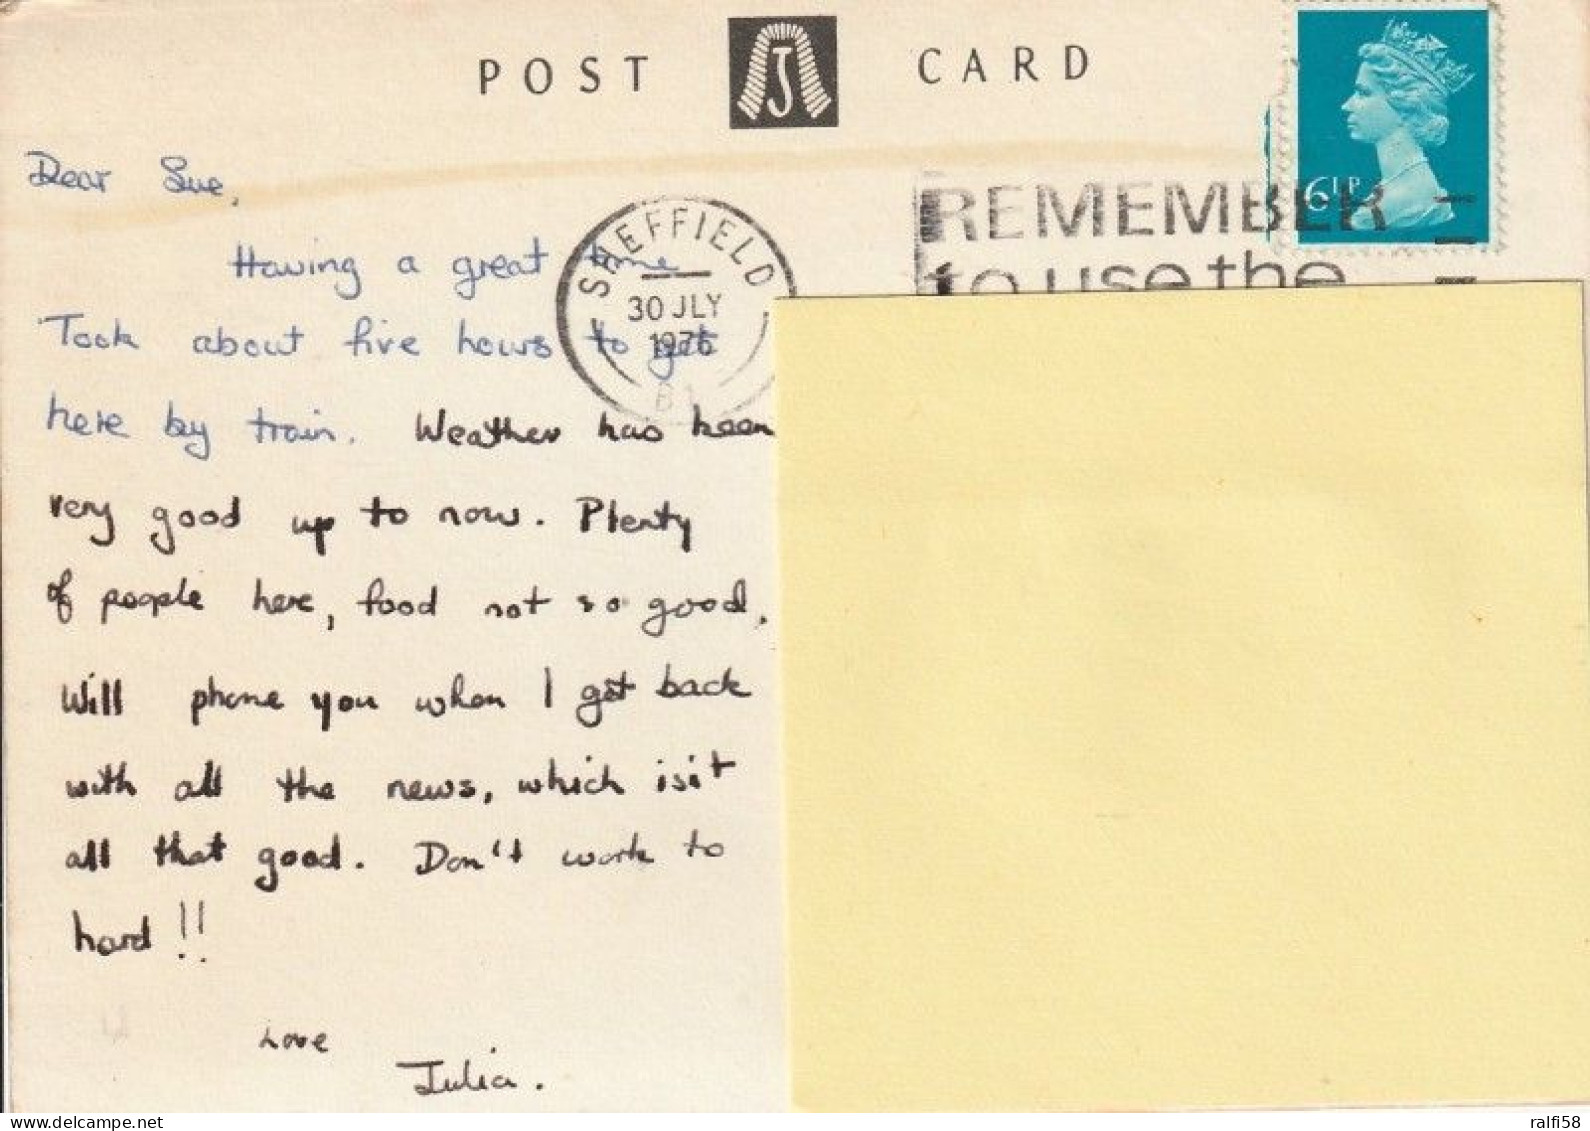 POST J CARD
Dear Sue,
Having a great time
Took about five hours to get
here by train. Weather has been
very good up to now. Plenty
of people here, food not so good.
Will phone you when I get back
with all the news, which isi't
all that good. Don't work to
hard!!
Love
Julia.
SHEFFIELD
30 JLY
1976
REMEMBER
to use the
6½P
ralfi58